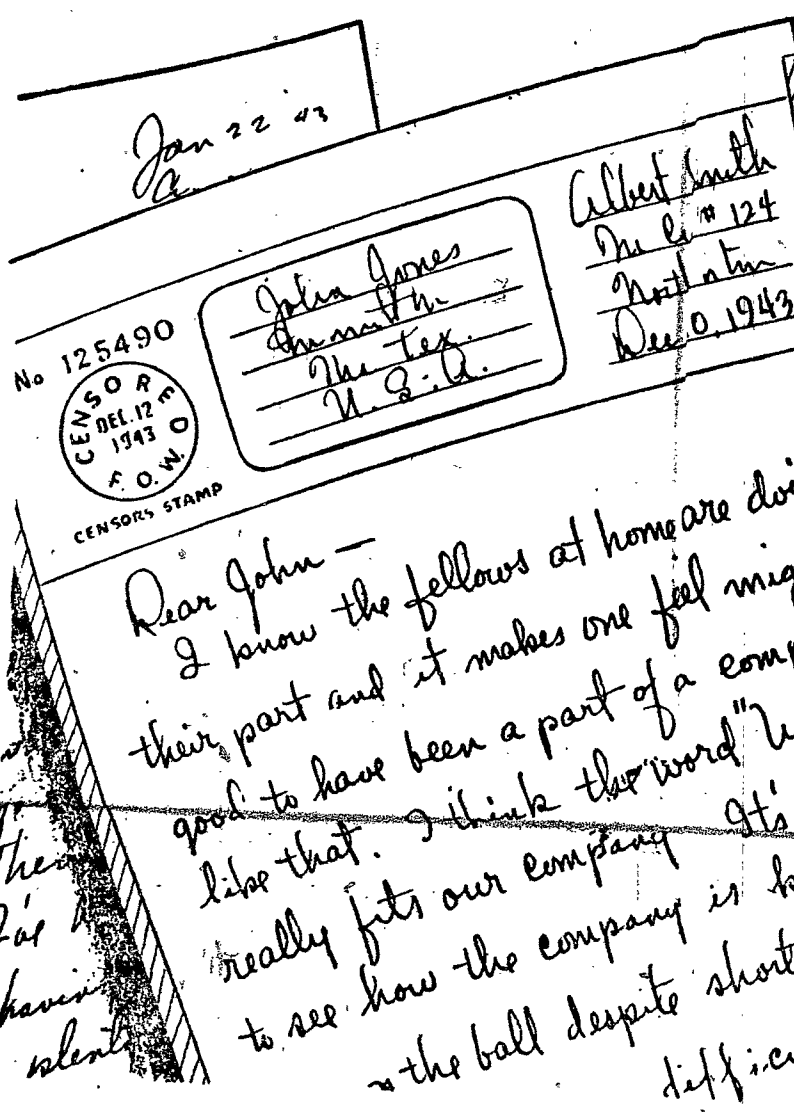 Jan 22 '43
No 125490
CENSORED
DEC. 12
1943
F.O.W.
CENSORS STAMP
Jones
The Tex.
U.S.A.
Albert Smith
# 124
0, 1943
Dear John —
I know the fellows at home are doi
their part and it makes one feel mig
good to have been a part of a comp
like that. I think the word "U
really fits our company It's
to see how the company is k
the ball despite short
diffic
The
I've
havin
plent